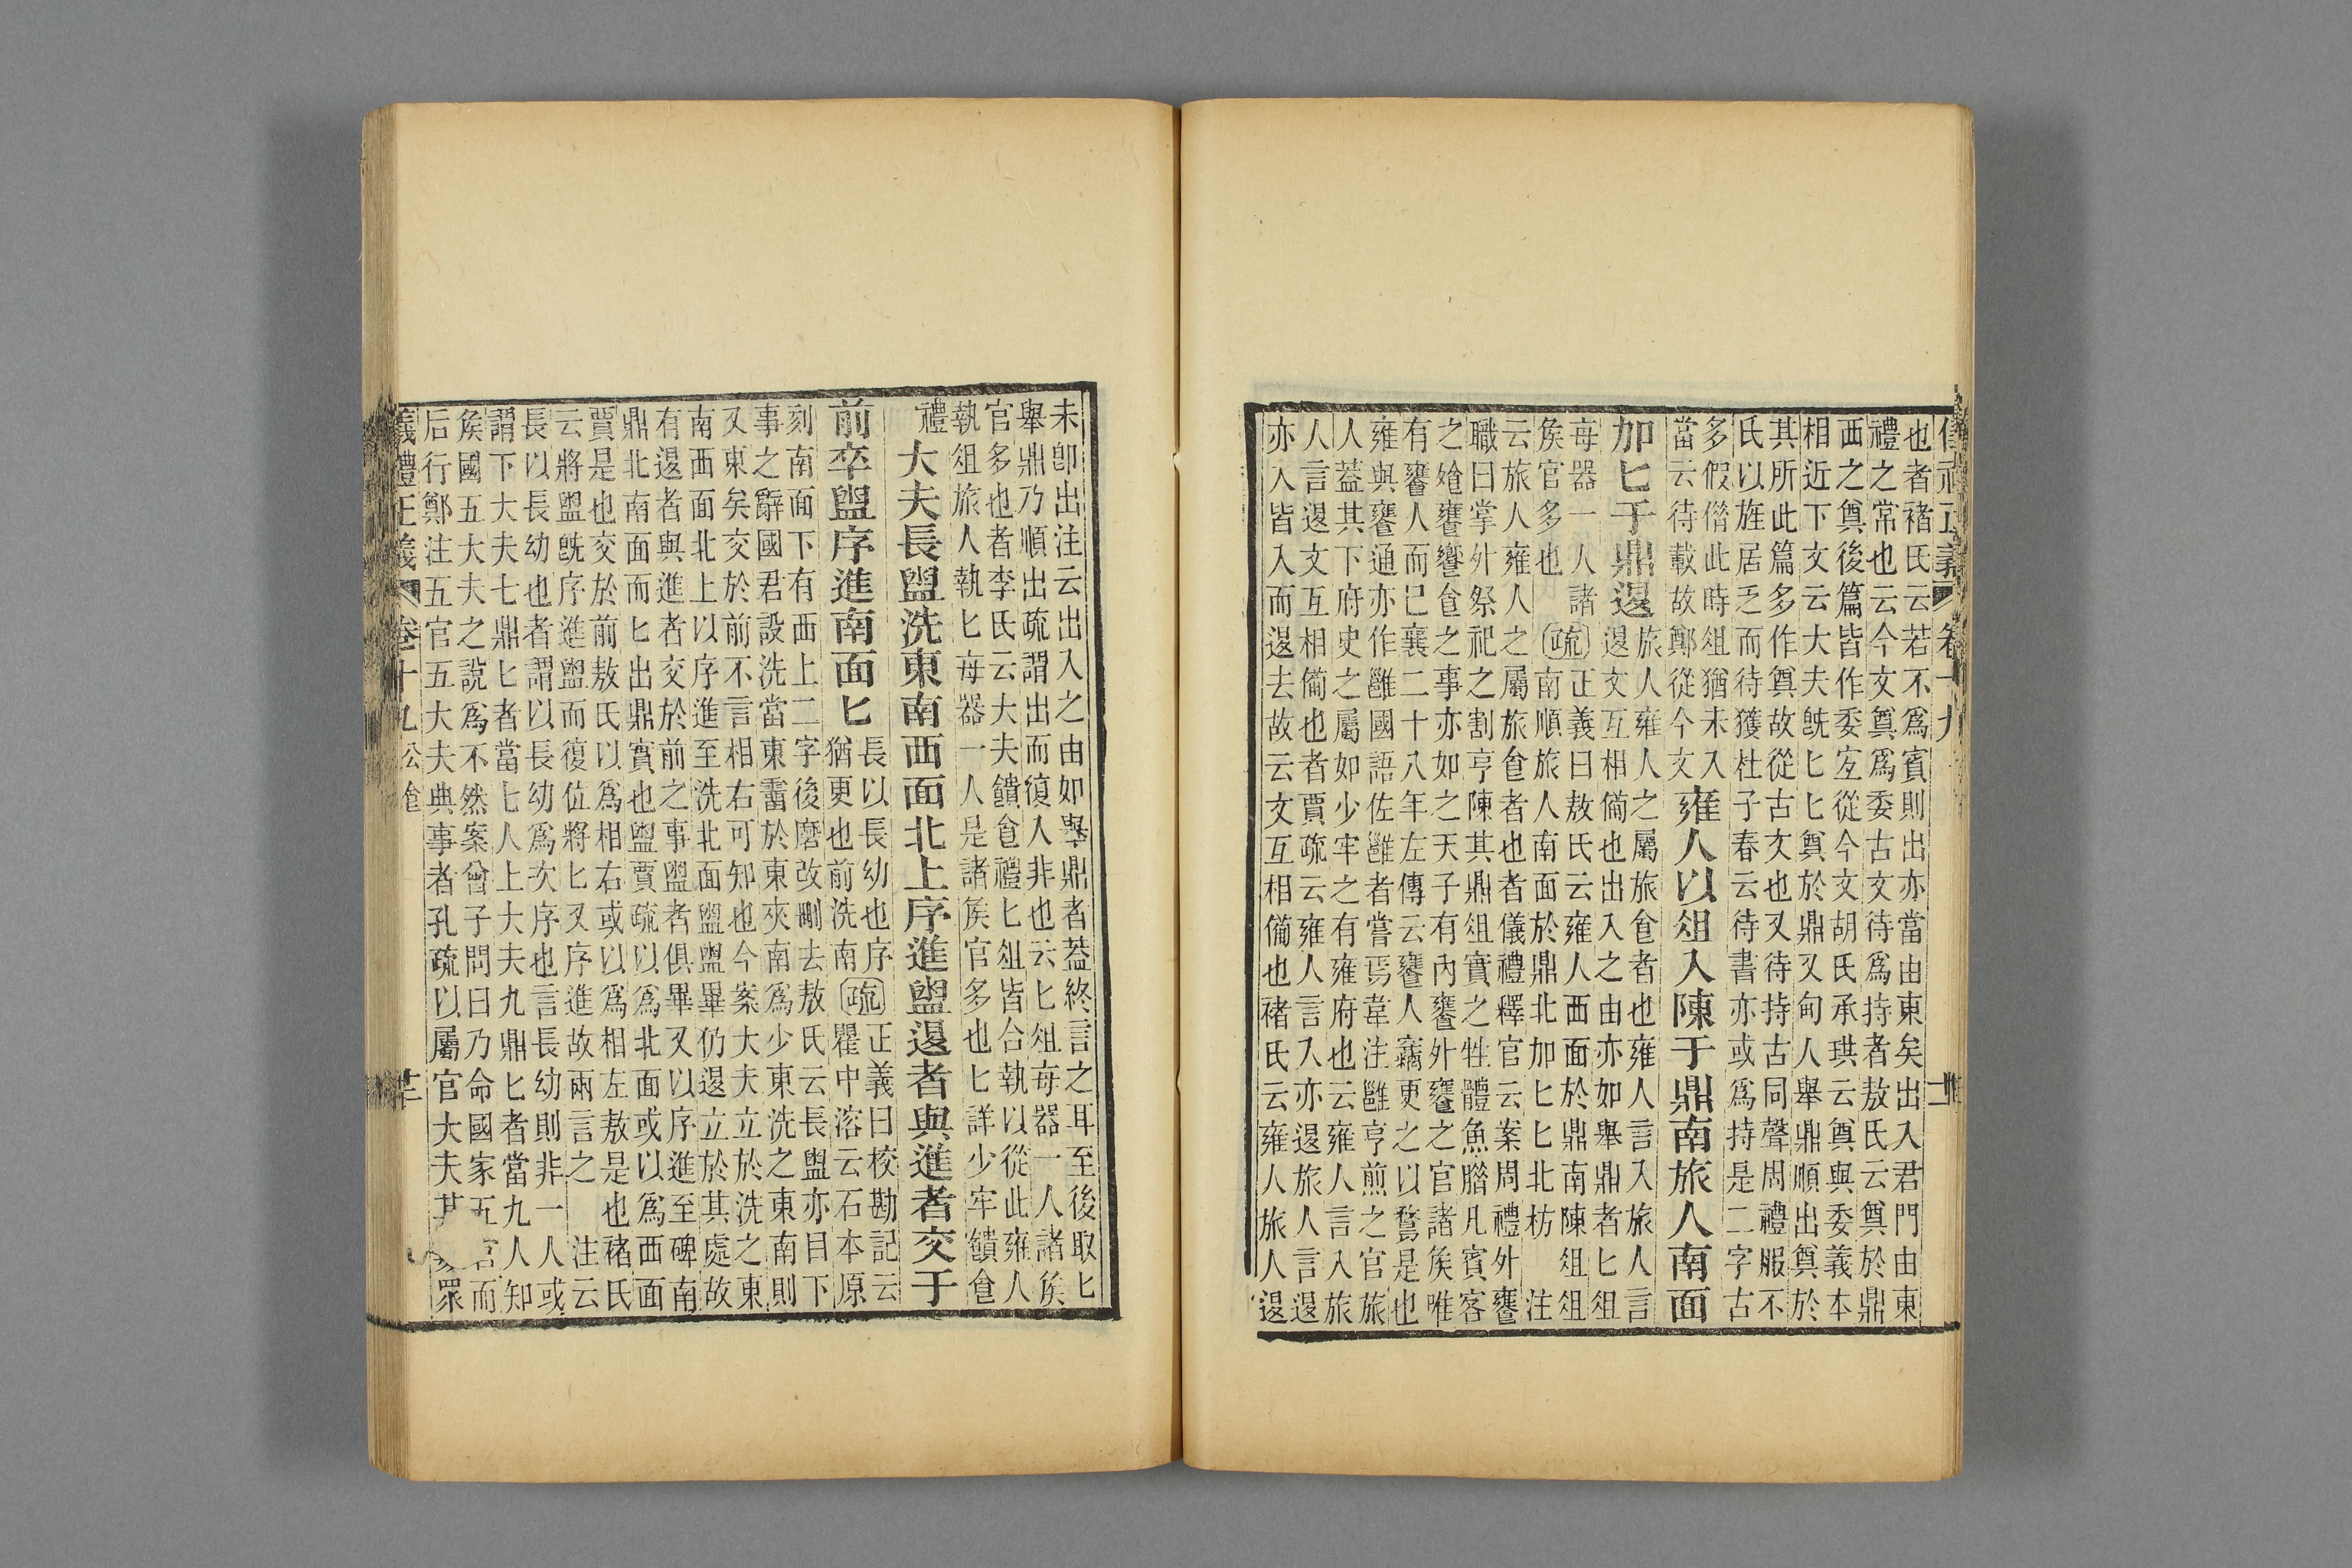 儀禮正義 卷十九
也者褚氏云若不爲賓則出亦當由東矣出入君門由東
禮之常也云今文奠爲委古文待爲持者敖氏云奠於鼎
西之奠後篇皆作委定從今文胡氏承珙云奠與委義本
相近下文云大夫旣匕匕奠於鼎又甸人舉鼎順出奠於
其所此篇多作奠故從古文也又待持古同聲周禮服不
氏以旌居乏而待獲杜子春云待書亦或爲持是二字古
多假偺此時俎猶未入
當云待載故鄭從今文
雍人以俎入陳于鼎南旅人南面
加匕于鼎退
旅人雍人之屬旅食者也雍人言入旅人言
退文互相備也出入之由亦如舉鼎者匕俎
每器一人諸
矦官多也
疏
正義曰敖氏云雍人西面於鼎南陳俎俎
南順旅人南面於鼎北加匕匕北枋 注
云旅人雍人之屬旅食者也者儀禮釋官云案周禮外饔
職曰掌外祭祀之割亨陳其鼎俎實之牲體魚腊凡賓客
之飧饔饗食之事亦如之天子有內饔外饔之官諸矦唯
有饔人而已襄二十八年左傳云饔人竊更之以鶩是也
雍與饔通亦作雝國語佐雝者嘗焉韋注雝亨煎之官旅
人蓋其下府史之屬如少牢之有雍府也云雍人言入旅
人言退文互相備也者賈疏云雍人言入亦退旅人言退
亦入皆入而退去故云文互相備也褚氏云雍人旅人退
未卽出注云出入之由如舉鼎者蓋終言之耳至後取匕
舉鼎乃順出疏謂出而復入非也云匕俎每器一人諸矦
官多也者李氏云大夫饋食禮匕俎皆合執以從此雍人
執俎旅人執匕每器一人是諸矦官多也匕詳少牢饋食
禮
大夫長盥洗東南西面北上序進盥退者與進者交于
前卒盥序進南面匕
長以長幼也序
猶更也前洗南
疏
正義曰校勘記云
瞿中溶云石本原
刻南面下有西上二字後磨改刪去敖氏云長盥亦目下
事之辭國君設洗當東霤於東夾南爲少東洗之東南則
又東矣交於前不言相右可知也今案大夫立於洗之東
南西面北上以序進至洗北面盥盥畢仍退立於其處故
有退者與進者交於前之事盥者俱畢又以序進至碑南
鼎北南面而匕出鼎實也盥賈疏以爲北面或以爲西面
賈是也交於前敖氏以爲相右或以爲相左敖是也褚氏
云將盥旣序進盥而復位將匕又序進故兩言之 注云
長以長幼也者謂以長幼爲次序也言長幼則非一人或
謂下大夫七鼎匕者當七人上大夫九鼎匕者當九人知
矦國五大夫之說爲不然案曾子問曰乃命國家五官而
后行鄭注五官五大夫典事者孔疏以屬官大夫其
眾
儀禮正義 卷十九 公食